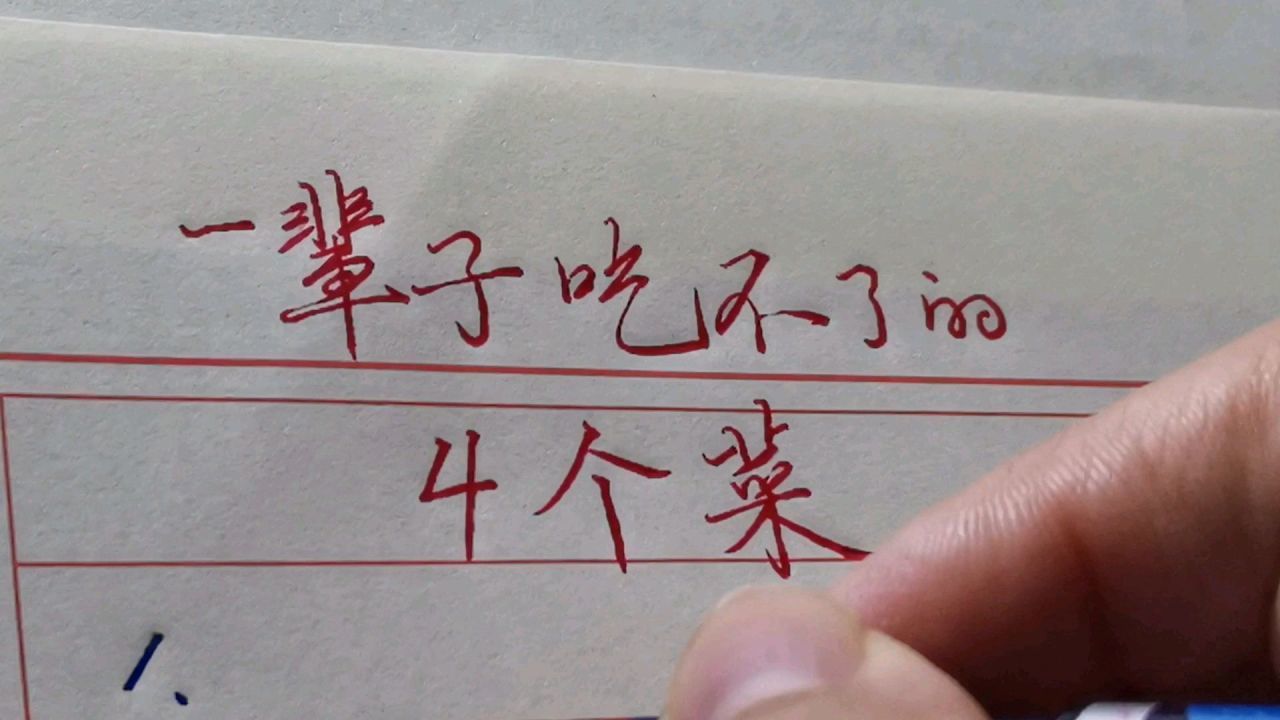 一辈子吃不了的
4个菜
1、